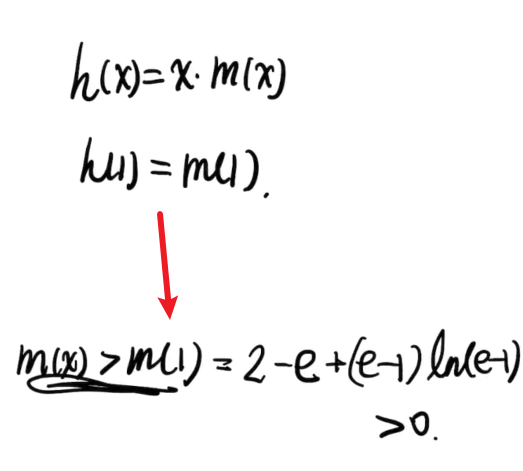 h(x)=x·m(x)
h(1)=m(1).
m(x)>m(1)=2-e+(e-1)ln(e-1)
>0.